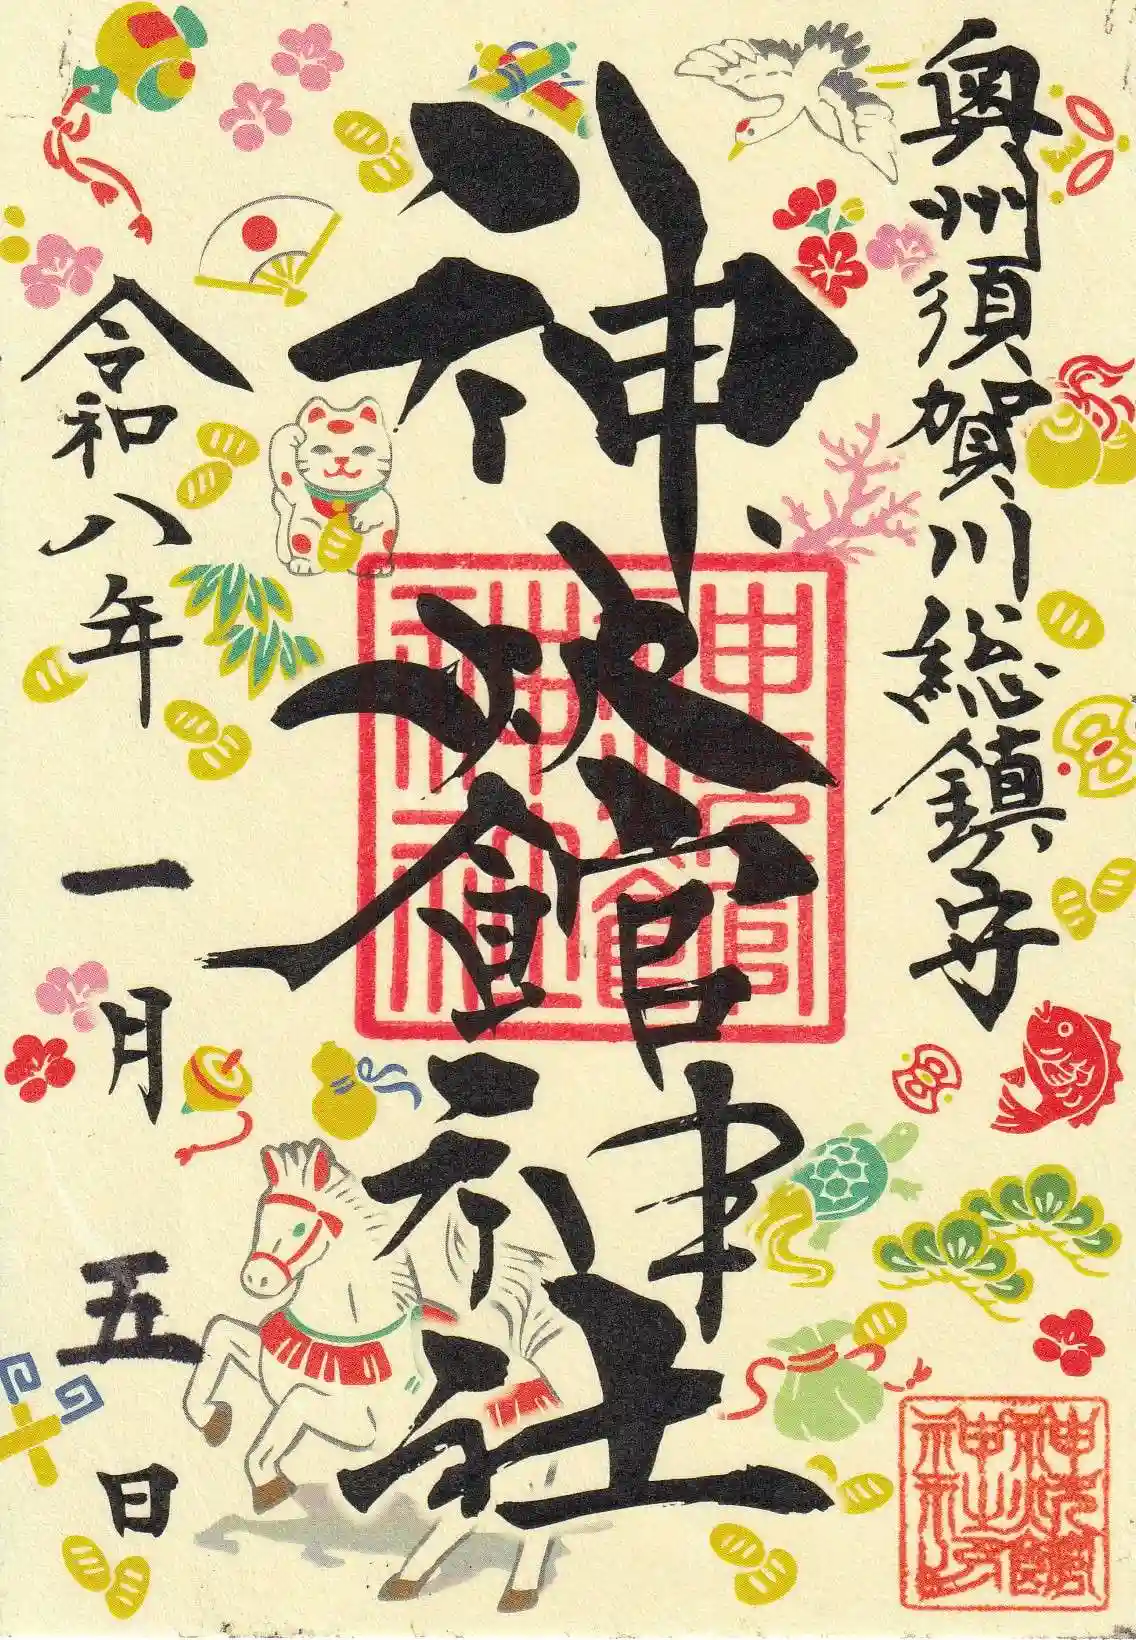 奥州須賀川総鎮守
神炊館神社
神炊館
神社
令和八年一月五日